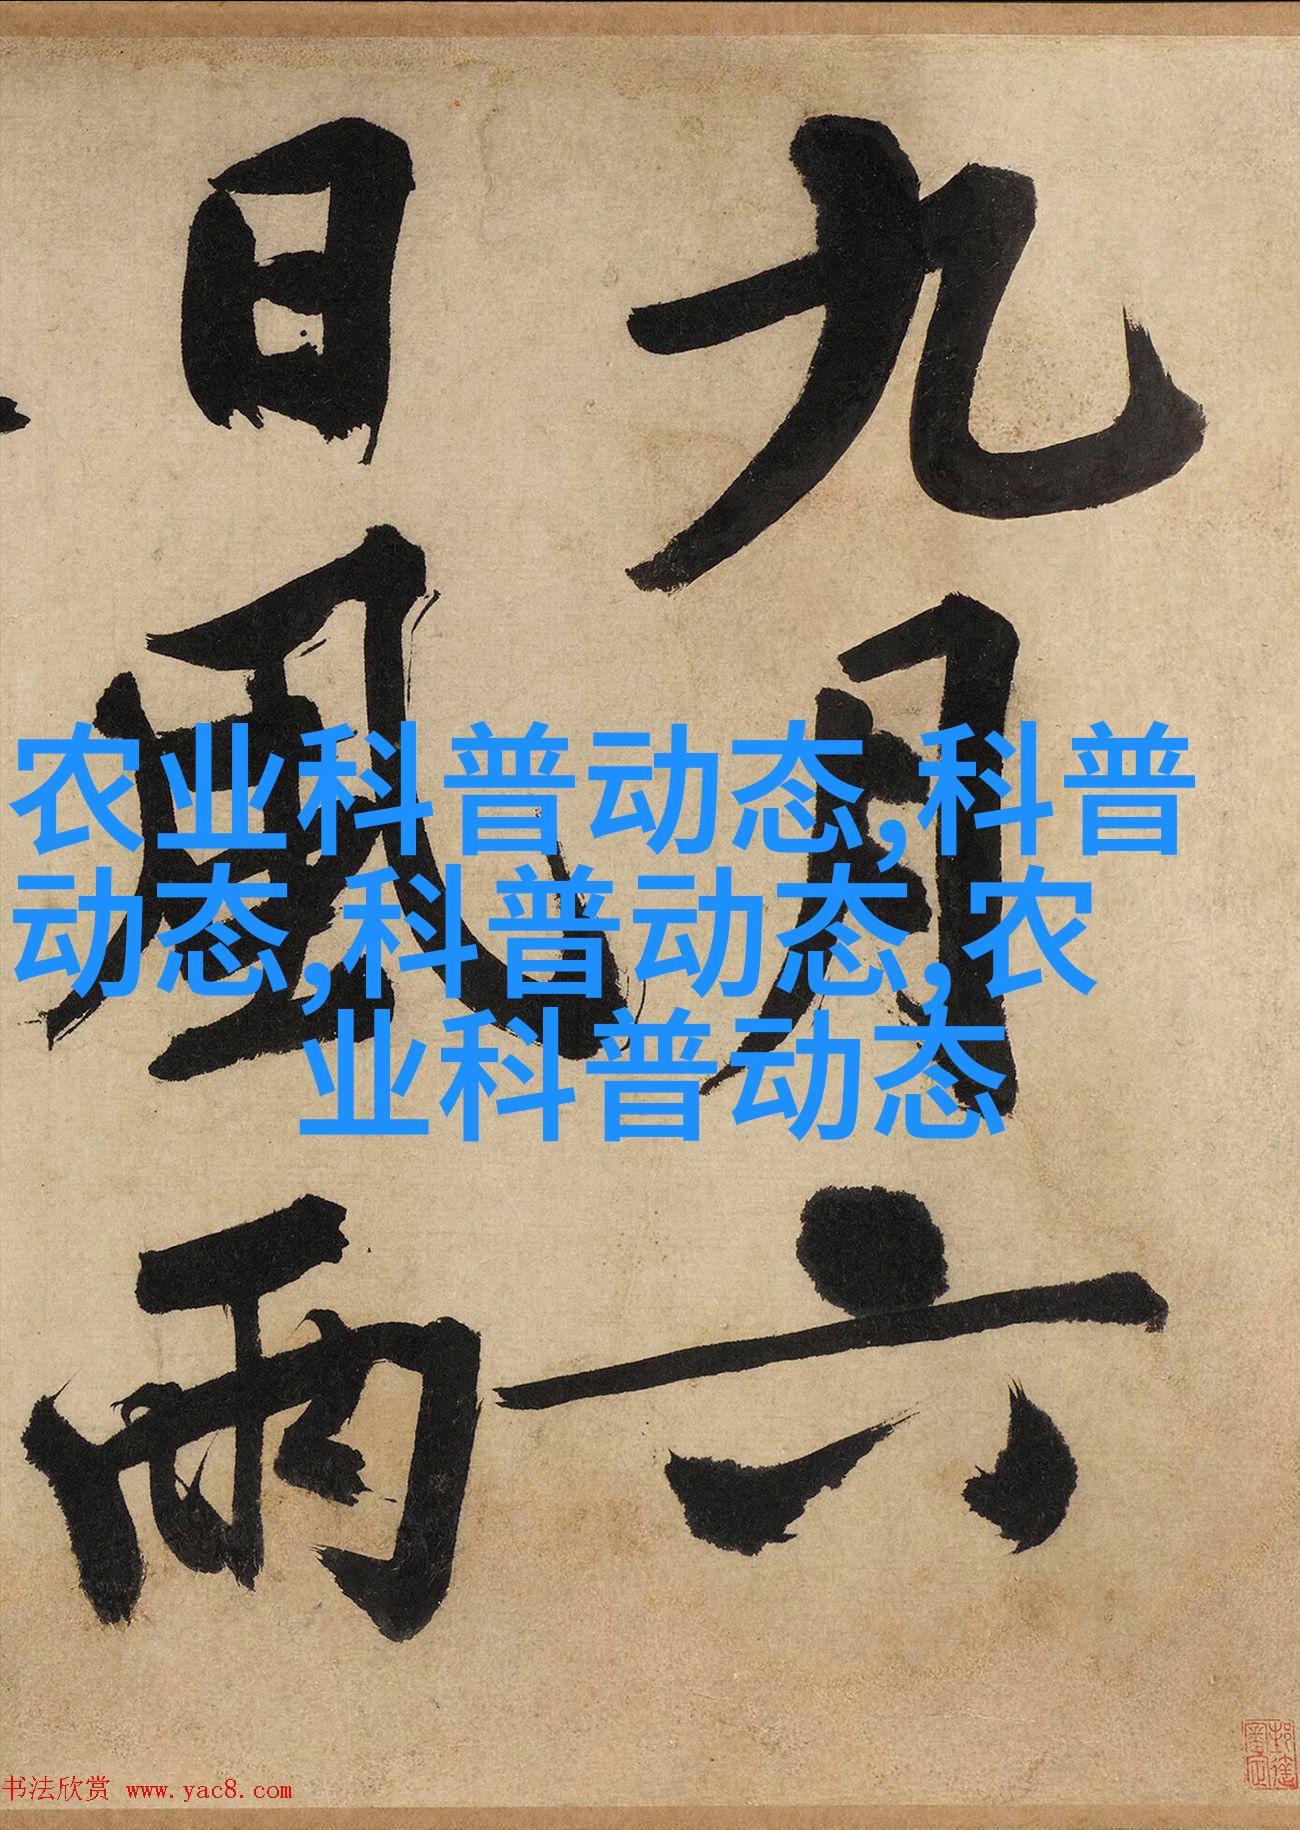 九月六
日風雨
农业科普动态,科普
动态,科普动态,农
业科普动态
书法欣赏 www.yac8.com